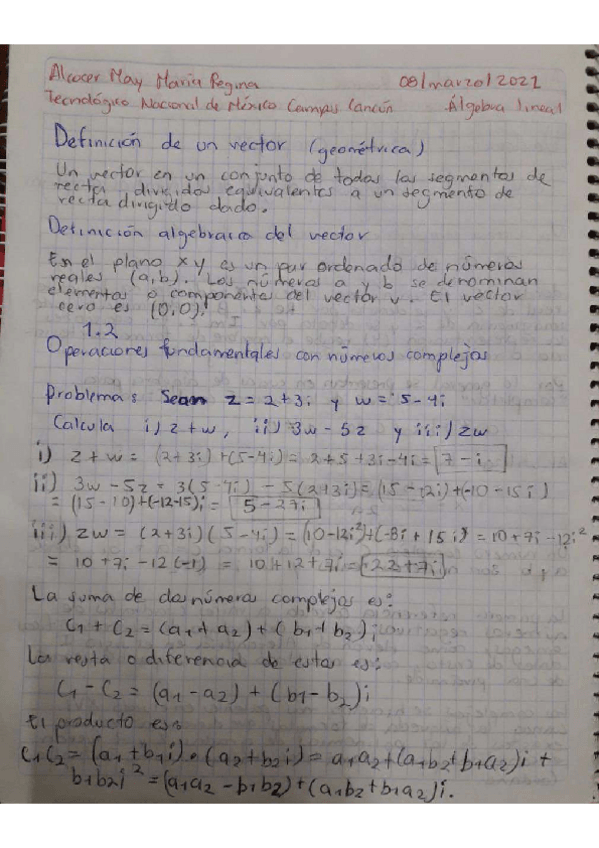 Alcocer May María Regina 08/marzo/2021
Tecnológico Nacional de México Campus Cancún Álgebra lineal
Definición de un vector (geométrica)
Un vector en un conjunto de todas las segmentos de
recta dirigidos equivalentes a un segmento de
recta dirigido dado.
Definición algebraica del vector
En el plano xy es un par ordenado de números
reales (a,b). Los números a y b se denominan
elementos o componentes del vector v. El vector
cero es (0,0).
1.2
Operaciones fundamentales con números complejos
Problemas Sean z=2+3i y w=5-4i
Calcula i) z+w, ii) 3w-5z y iii) zw
i) z+w = (2+3i)+(5-4i)=2+5+3i-4i=7-i
ii) 3w-5z = 3(5-4i)-5(2+3i)=(15-12i)+(-10-15i)
=(15-10)+(-12-15)i=5-27i
iii) zw = (2+3i)(5-4i)=(10-12i²)+(-8i+15i)=10+7i-12i²
= 10+7i-12(-1) = 10+12+7i=22+7i
La suma de dos números complejos es:
C1+C2=(a1+a2)+(b1+b2)i
La resta o diferencia de estas es:
C1-C2=(a1-a2)+(b1-b2)i
El producto es:
C1C2=(a1+b1i)•(a2+b2i)=a1a2+(a1b2+b1a2)i+
b1b2i²=(a1a2-b1b2)+(a1b2+b1a2)i.